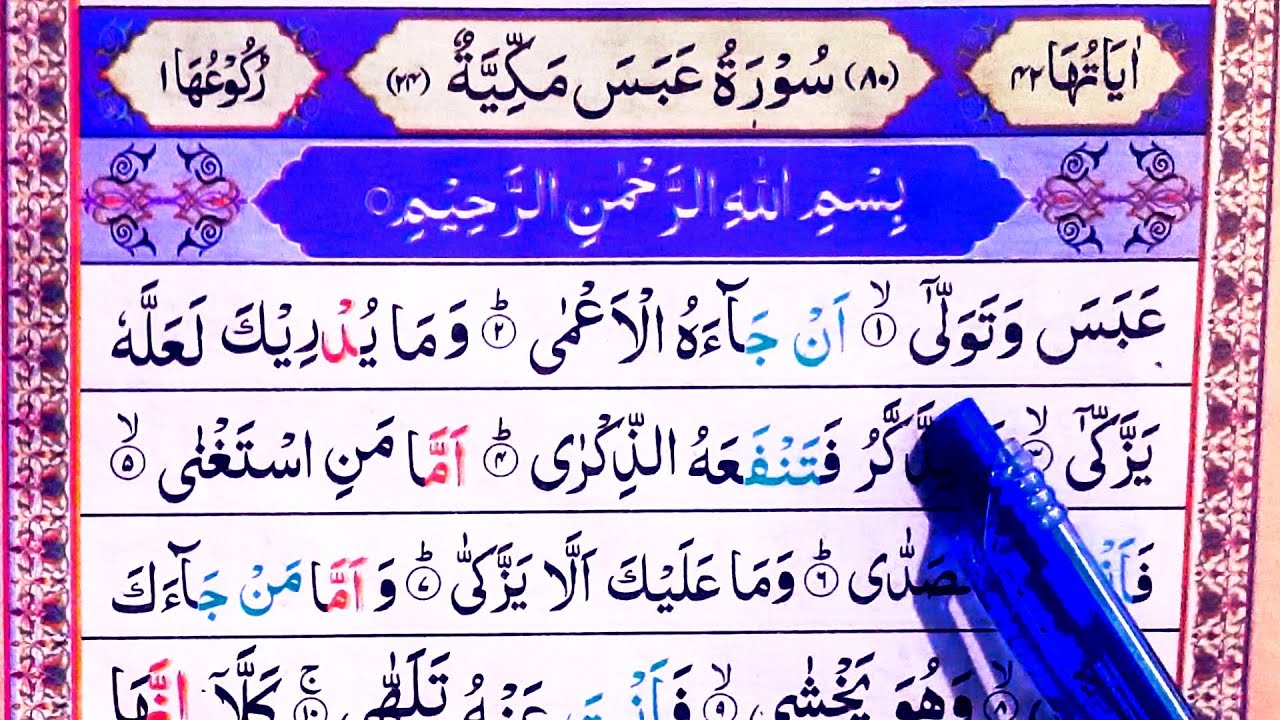 اٰيَاتُهَا ٤٢ (٨٠) سُوْرَةُ عَبَسَ مَكِّيَّةٌ (٢٤) رُكُوْعُهَا ١
بِسْمِ اللّٰهِ الرَّحْمٰنِ الرَّحِيْمِ
عَبَسَ وَتَوَلّٰٓى ۙ‏﴿١﴾ اَنْ جَآءَهُ الْاَعْمٰى ؕ‏﴿٢﴾ وَمَا يُدْرِيْكَ لَعَلَّهٗ
يَزَّكّٰٓى ۙ‏ ذَّكَّرُ فَتَنْفَعَهُ الذِّكْرٰى ؕ‏﴿٤﴾ اَمَّا مَنِ اسْتَغْنٰى ۙ‏﴿٥﴾
فَاَنْ صَدّٰى ؕ‏﴿٦﴾ وَمَا عَلَيْكَ اَلَّا يَزَّكّٰى ؕ‏﴿٧﴾ وَاَمَّا مَنْ جَآءَكَ
﴿٨﴾ۙ‏ وَهُوَ يَخْشٰى ۙ‏﴿٩﴾ فَاَنْتَ عَنْهُ تَلَهّٰى ۚ‏﴿١٠﴾ كَلَّاۤ اِنَّهَا